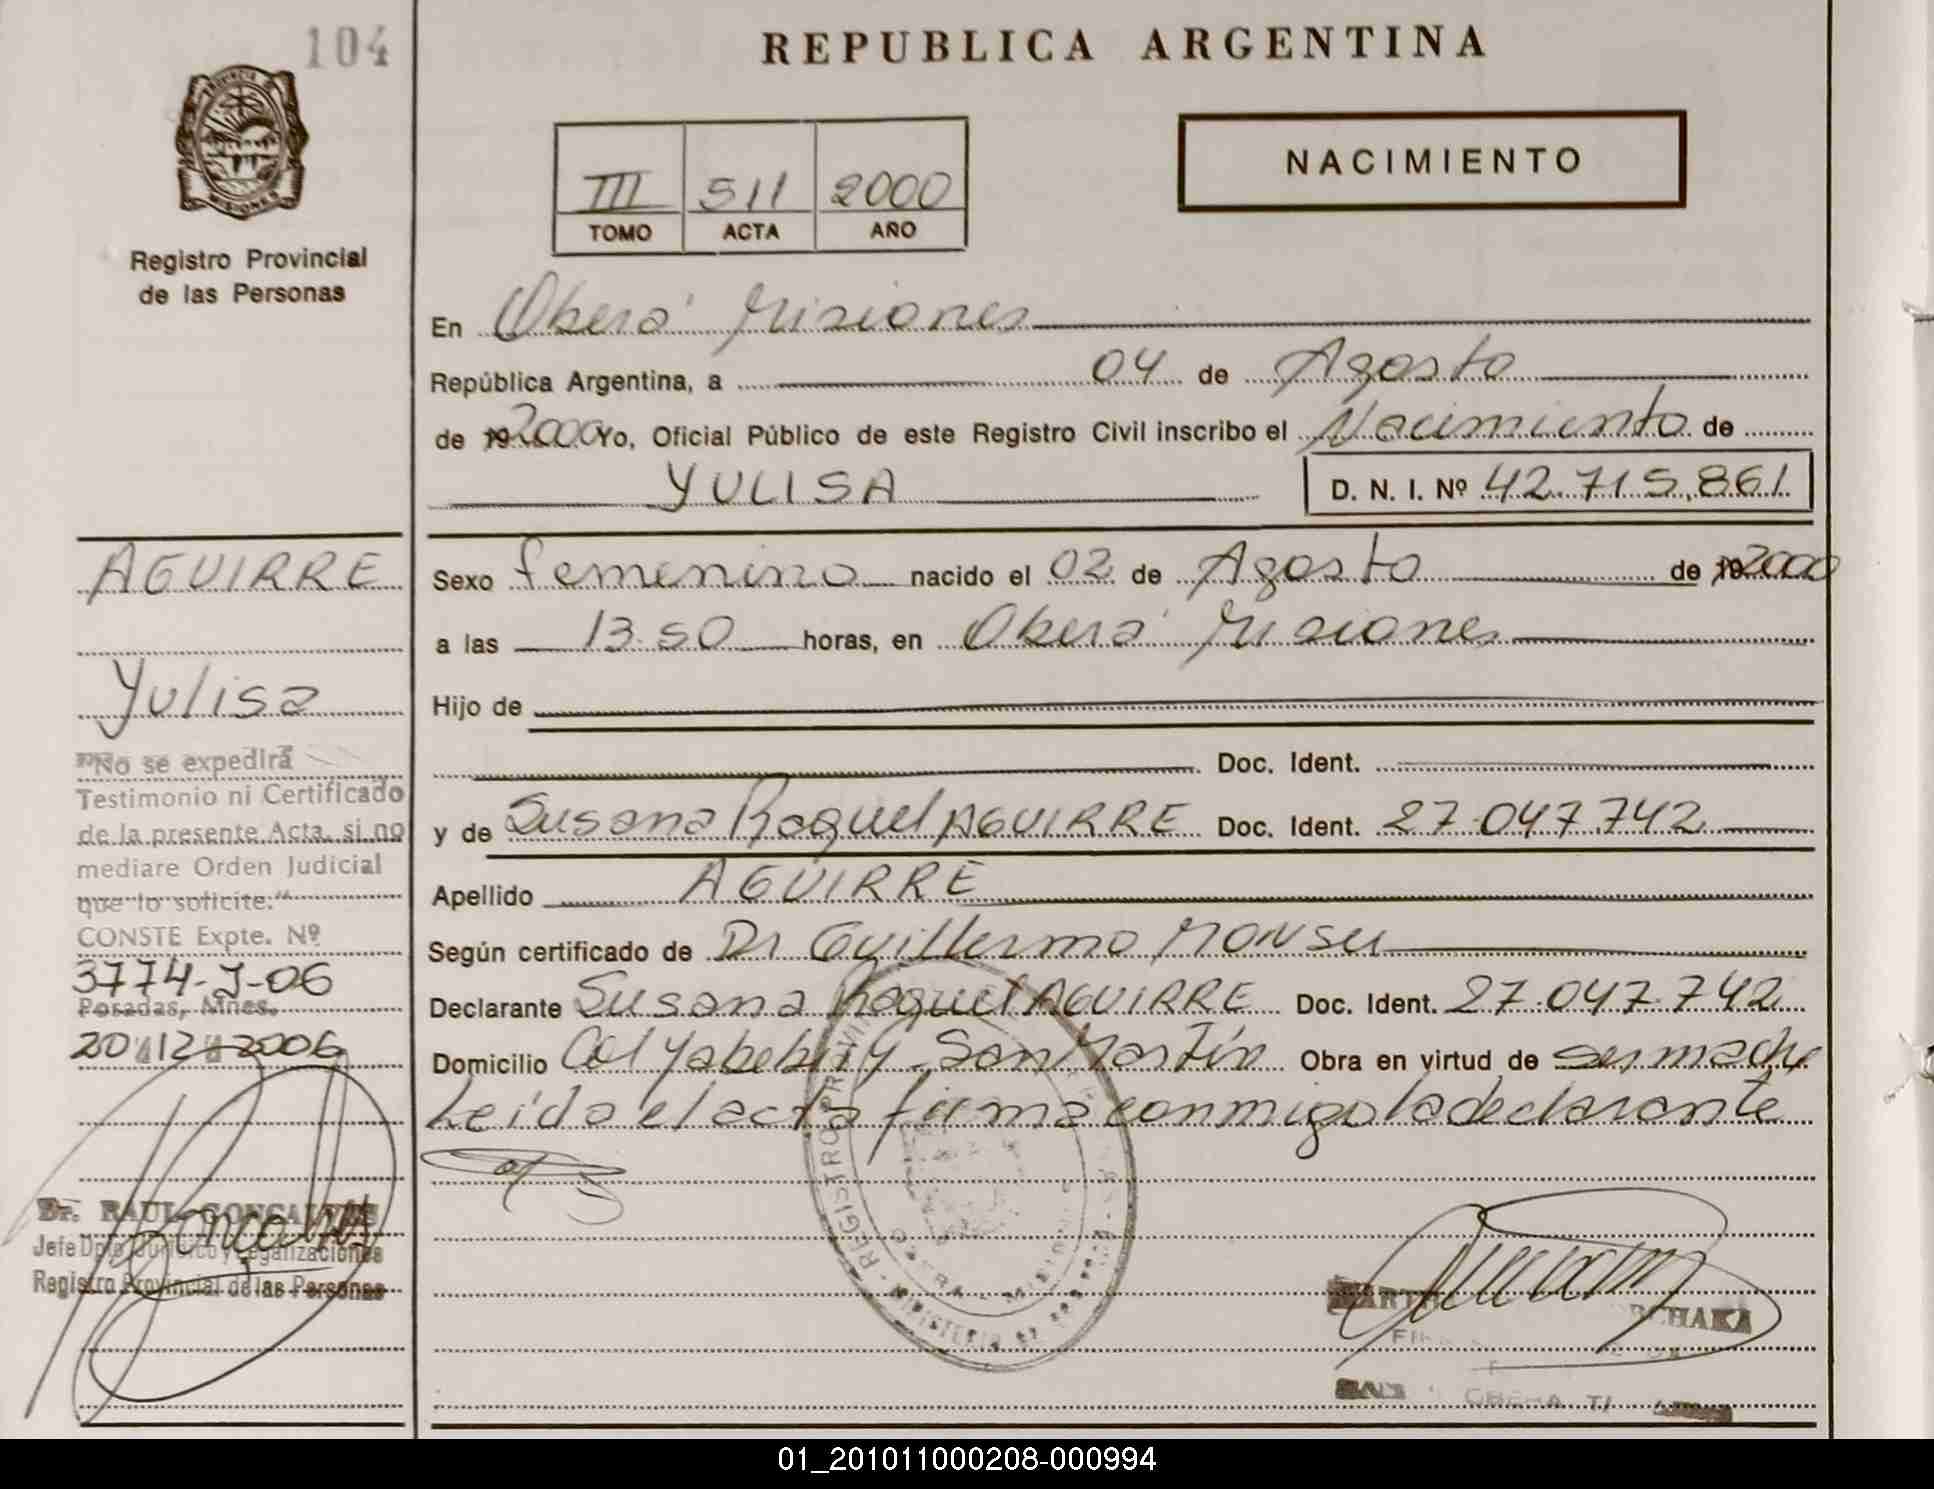 104
PROVINCIA DE
MISIONES
Registro Provincial
de las Personas
REPUBLICA ARGENTINA
III 511 2000
TOMO ACTA AÑO
NACIMIENTO
En Oberá Misiones
República Argentina, a 04 de Agosto
de 19 2000 Yo, Oficial Público de este Registro Civil inscribo el Nacimiento de
YULISA D. N. I. Nº 42.715.861
AGUIRRE
Yulisa
"No se expedirá
Testimonio ni Certificado
de la presente Acta, si no
mediare Orden Judicial
que lo solicite."
CONSTE Expte. Nº
3774-J-06
Posadas, Mnes.
20 12 2006
Dr. RAUL GONCALVES
Jefe Dpto Jurídico y Legalizaciones
Registro Provincial de las Personas
Sexo femenino nacido el 02 de Agosto de 19 2000
a las 13.50 horas, en Oberá Misiones
Hijo de
Doc. Ident.
y de Susana Raquel AGUIRRE Doc. Ident. 27.047.742
Apellido AGUIRRE
Según certificado de Dr Guillermo
Declarante Susana Raquel AGUIRRE Doc. Ident. 27.047.742
Domicilio Col Yabebiry San Martín Obra en virtud de ser madre
Leída el acta firma conmigo la declarante
REGISTRO PROVI
OBERA - MISIONES
MINISTERIO DE
01_201011000208-000994